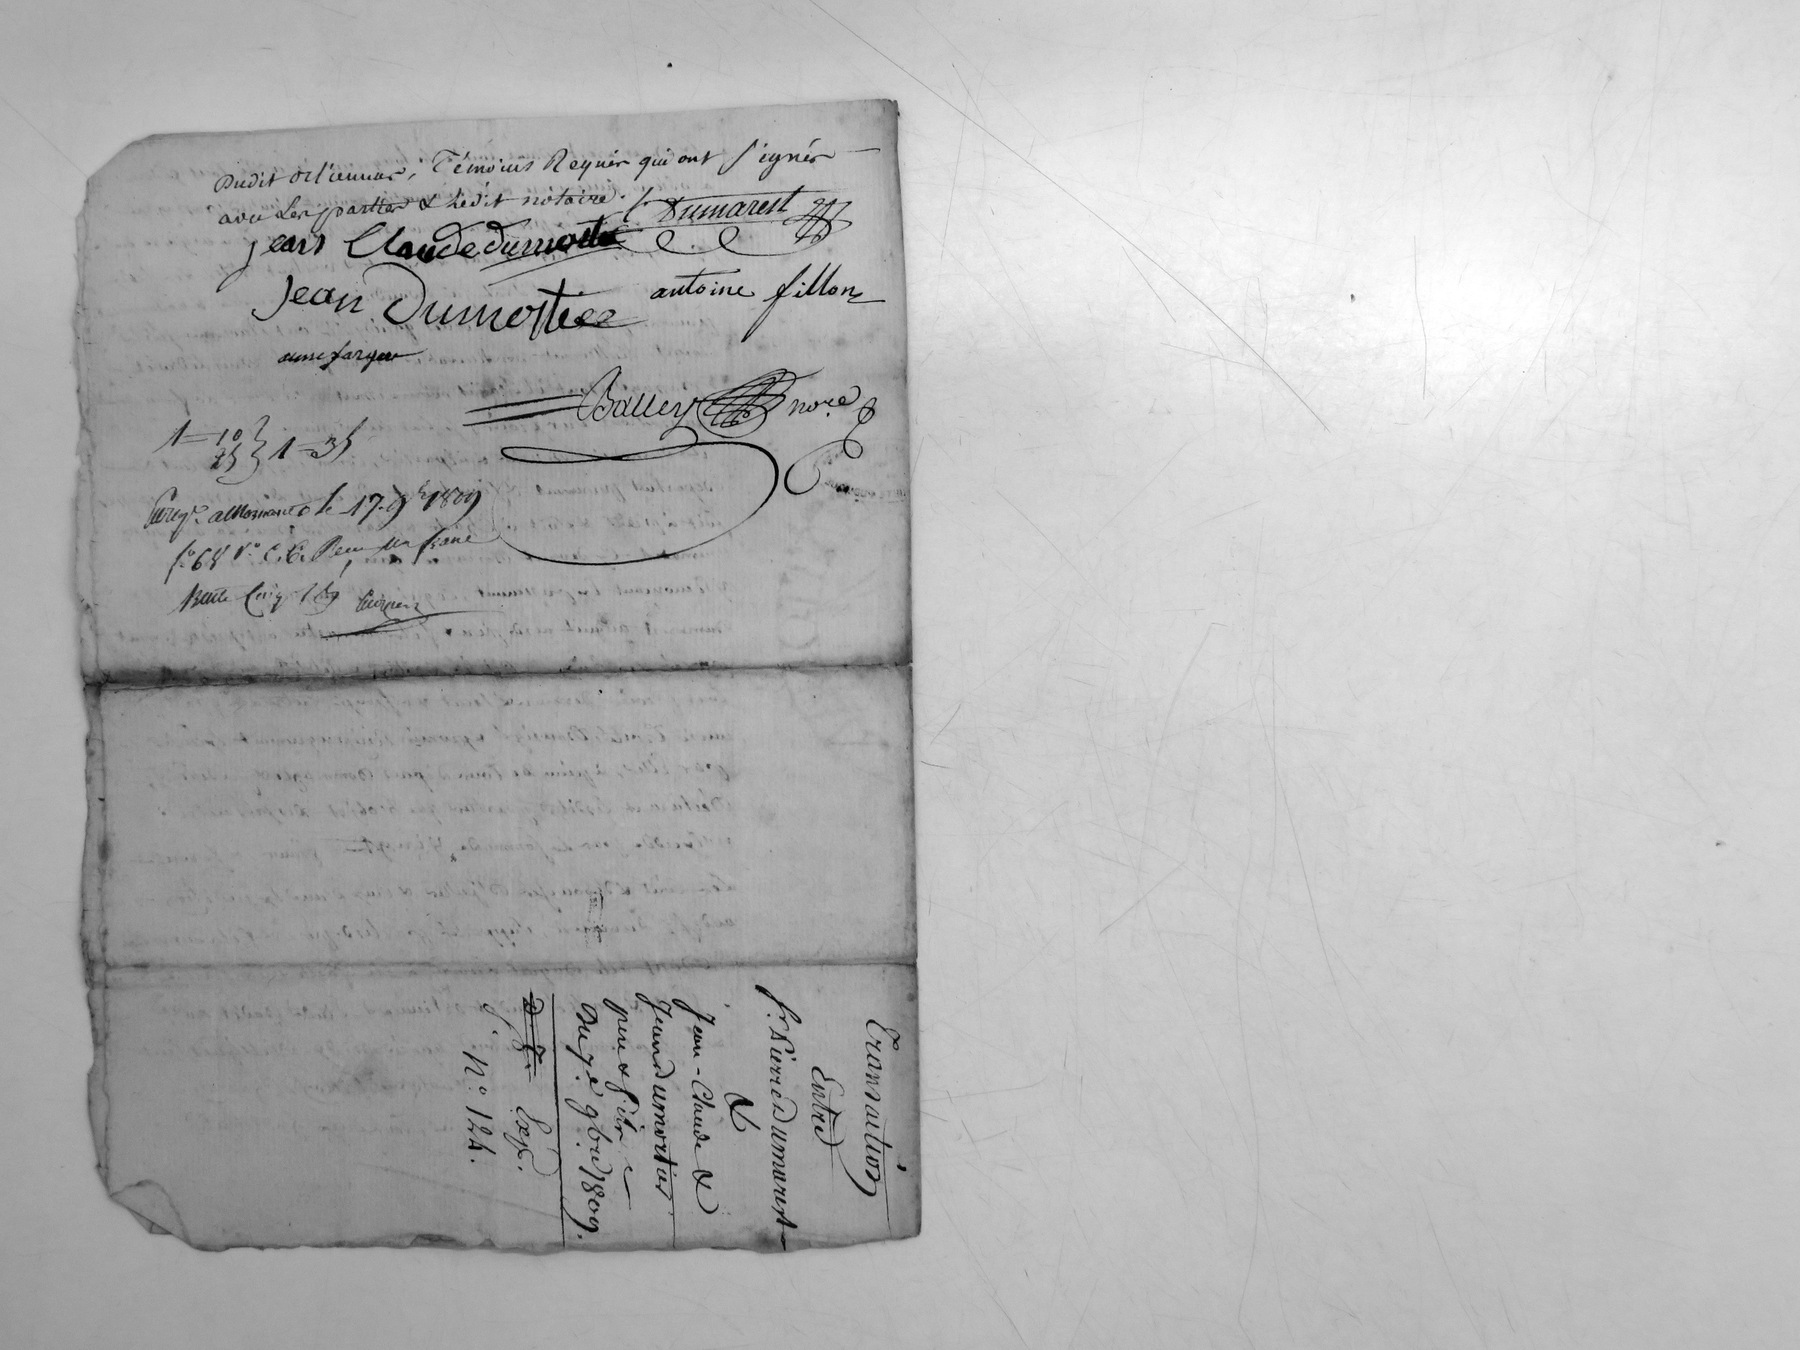 dudit orliennas, Témoins Requis qui ont signés
avec les parties & ledit notaire. f. Dumarest
jean Claude dumortie
Jean Dumortiee antoine fillon
Balley nore
1=10
25 } 1=35
Enregé. a Mornant le 17. 9bre 1809
fo. 68 Vo. C. 6. Reçu un franc
Transaction
Entre
fs. Pierre dumarest
&
Jean-Claude &
Jean dumortier
pere & fils
Du 7e 9bre 1809.
Exp.
No. 124.